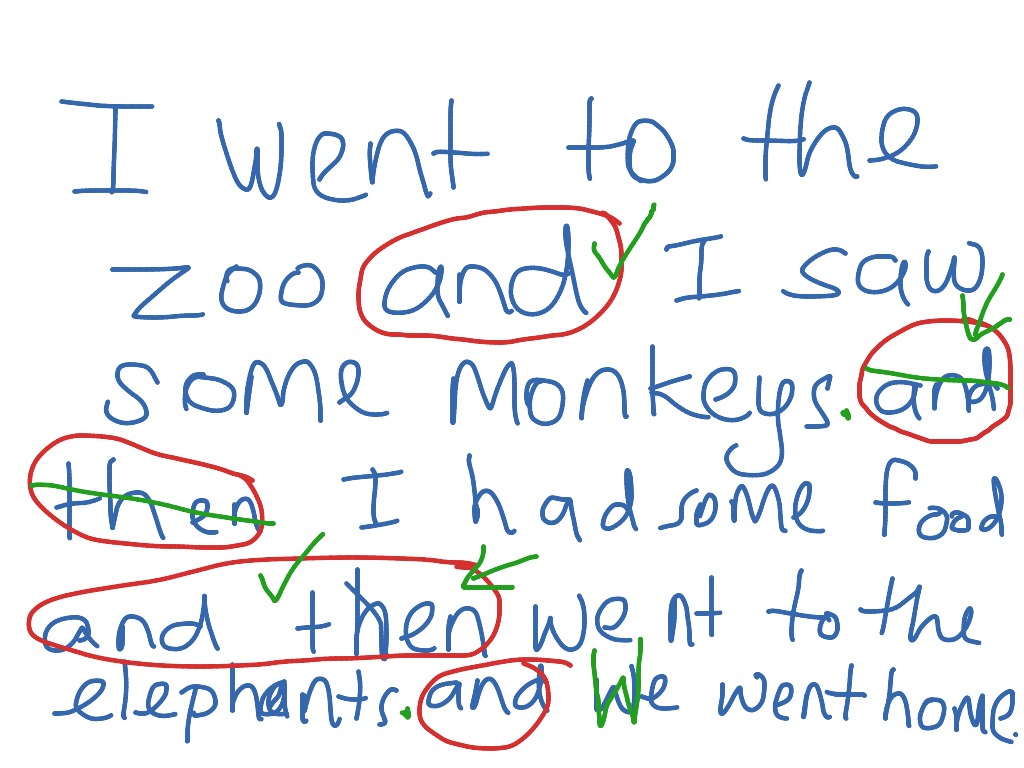 I went to the
zoo and I saw
some monkeys. and
then I had some food
and then went to the
elephants. and We went home.